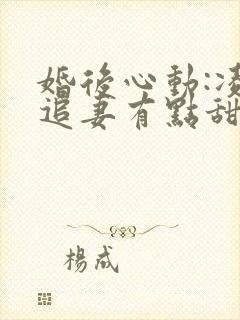 婚後心動:凌
追妻有點甜
楊成